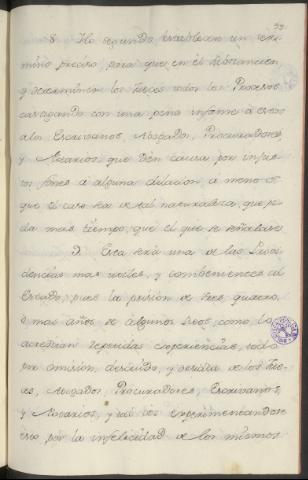 59
8. Lo segundo, establecer un ter-
mino preciso, para que en el substancien
y determinen los Jueces todos los Procesos
castigando con una pena infame a estos
a los Escrivanos, Abogados, Procuradores,
y Notarios, que den causa por injus-
tos fines á alguna dilacion, á menos
que el caso sea de tal naturaleza, que pi-
da mas tiempo, que el que se señalase.
9. Esta será una de las Provi-
dencias mas utiles, y combenientes al
Estado, pues la prision de tres, quatro,
ó mas años de algunos Reos, como lo
acreditan repetidas experiencias, todo
por omision, descuido, y desidia de los Jue-
ces, Abogados, Procuradores, Escrivanos,
y Notarios, y tal vez experimentandose
esto por la infelicidad de los mismos